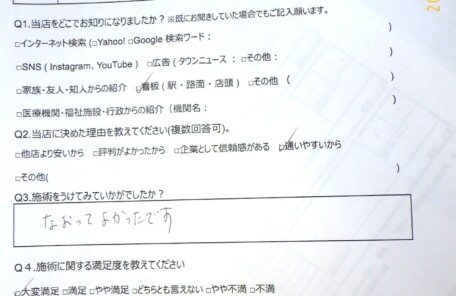 Q1.当店をどこでお知りになりましたか？※既にお聞きしていた場合でもご記入願います。
□インターネット検索 (□Yahoo! □Google 検索ワード： )
□SNS ( Instagram、YouTube ) □広告 ( タウンニュース ： □その他： )
□家族・友人・知人からの紹介 □看板 ( 駅・路面・店頭 ) □その他 ( )
□医療機関・福祉施設・行政からの紹介 (機関名： )
Q2.当店に決めた理由を教えてください(複数回答可)。
□他店より安いから □評判がよかったから □企業として信頼感がある □通いやすいから
□その他( )
Q3.施術をうけてみていかがでしたか？
なおってよかったです
Q４.施術に関する満足度を教えてください
□大変満足 □満足 □やや満足 □どちらとも言えない □やや不満 □不満